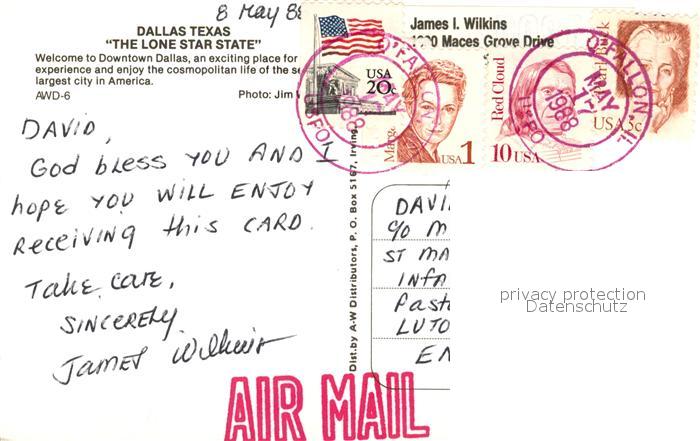 8 May 88
DALLAS TEXAS
"THE LONE STAR STATE"
Welcome to Downtown Dallas, an exciting place for
experience and enjoy the cosmopolitan life of the
largest city in America.
AWD-6 Photo: Jim
DAVID,
GOD bLESS YOU AND I
hOPE YOU WILL ENJOY
RECEIVING thIS CARD.
TAKE CARE,
SINCERELY
JAMES Wilkins
Dist.by A-W Distributors, P. O. Box 5167, Irving,
James I. Wilkins
Maces Grove Drive
USA
20c
USA 1
Red Cloud
10 USA
USA 3c
O'FALLON
MAY
1988
USPO
O'FALLON, IL
MAY
1988
USPO
DAVI
c/o M
ST MA
INFA
Past
LUTO
EN
privacy protection
Datenschutz
AIR MAIL